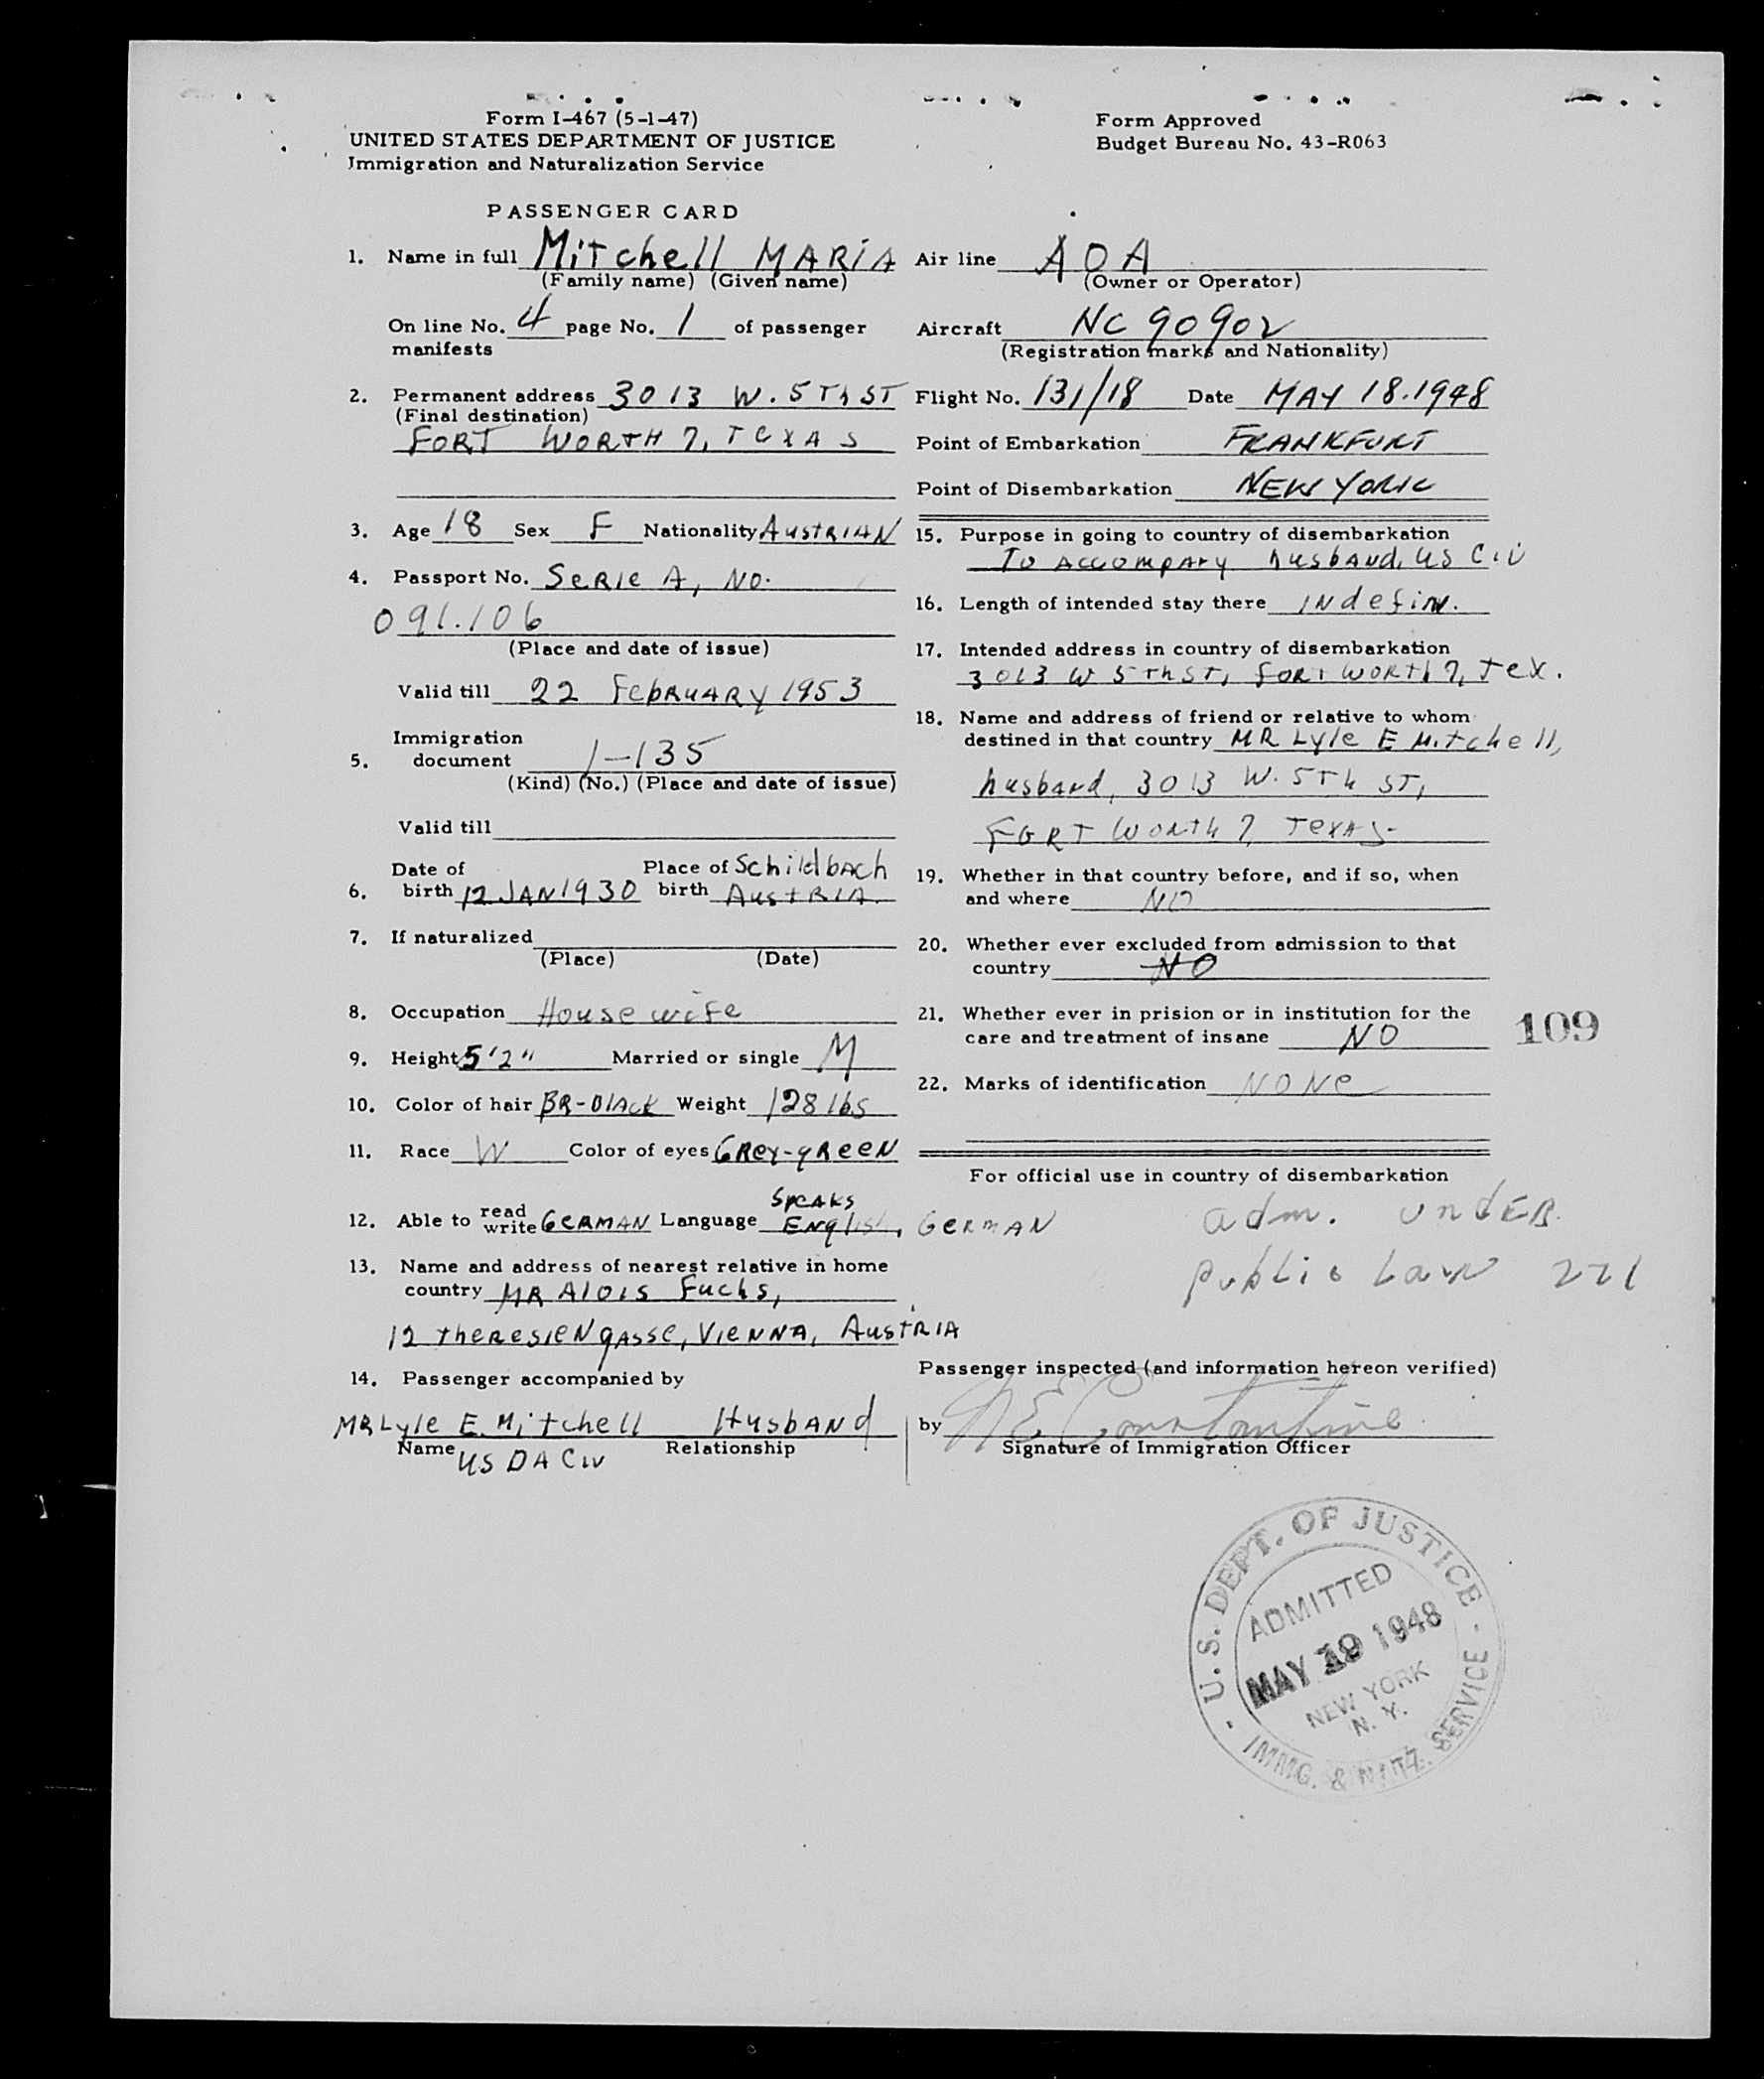 Form I-467 (5-1-47)
UNITED STATES DEPARTMENT OF JUSTICE
Immigration and Naturalization Service
Form Approved
Budget Bureau No. 43-R063
PASSENGER CARD
1. Name in full Mitchell MARIA
(Family name) (Given name)
On line No. 4 page No. 1 of passenger
manifests
2. Permanent address 3013 W. 5Th ST
(Final destination)
FORT WORTH 7, TEXAS
3. Age 18 Sex F Nationality AUSTRIAN
4. Passport No. SeRIe A, No.
091.106
(Place and date of issue)
Valid till 22 FebRUARY 1953
Immigration
5. document I-135
(Kind) (No.) (Place and date of issue)
Valid till
Date of Place of Schildbach
6. birth 12 JAN 1930 birth AustRIA.
7. If naturalized
(Place) (Date)
8. Occupation Housewife
9. Height 5'2" Married or single M
10. Color of hair BR-Black Weight 128 lbs
11. Race W Color of eyes GRey-gReeN
SpeAKs
12. Able to read write GERMAN Language English, GERMAN
13. Name and address of nearest relative in home
country MR Alois Fuchs,
12 theResieNgAsse, VIeNNA, AustRIA
14. Passenger accompanied by
MR Lyle E. Mitchell HusbANd
Name Relationship
US DA Civ
Air line AOA
(Owner or Operator)
Aircraft NC 90902
(Registration marks and Nationality)
Flight No. 131/18 Date MAY 18.1948
Point of Embarkation FRANKFURT
Point of Disembarkation NEW YORK
15. Purpose in going to country of disembarkation
To AccompAny husbANd, US Civ
16. Length of intended stay there INdefin.
17. Intended address in country of disembarkation
3013 W 5Th ST, FORT WORTh 7, Tex.
18. Name and address of friend or relative to whom
destined in that country MR Lyle E Mitchell,
husband, 3013 W. 5Th ST,
FORT WORTh 7 TexAs.
19. Whether in that country before, and if so, when
and where NO
20. Whether ever excluded from admission to that
country NO
21. Whether ever in prision or in institution for the
care and treatment of insane NO
109
22. Marks of identification NONe
For official use in country of disembarkation
adm. undER
public Law 271
Passenger inspected (and information hereon verified)
by N E Constantine
Signature of Immigration Officer
U.S. DEPT. OF JUSTICE
ADMITTED
MAY 19 1948
NEW YORK
N. Y.
IMMIG. & NATZ. SERVICE